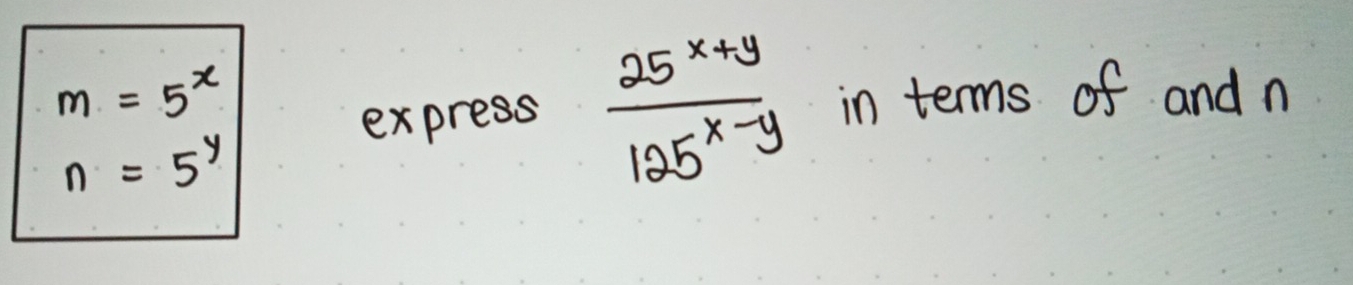 m = 5^x
n = 5^y
express 25^{x+y} / 125^{x-y} in terms of and n